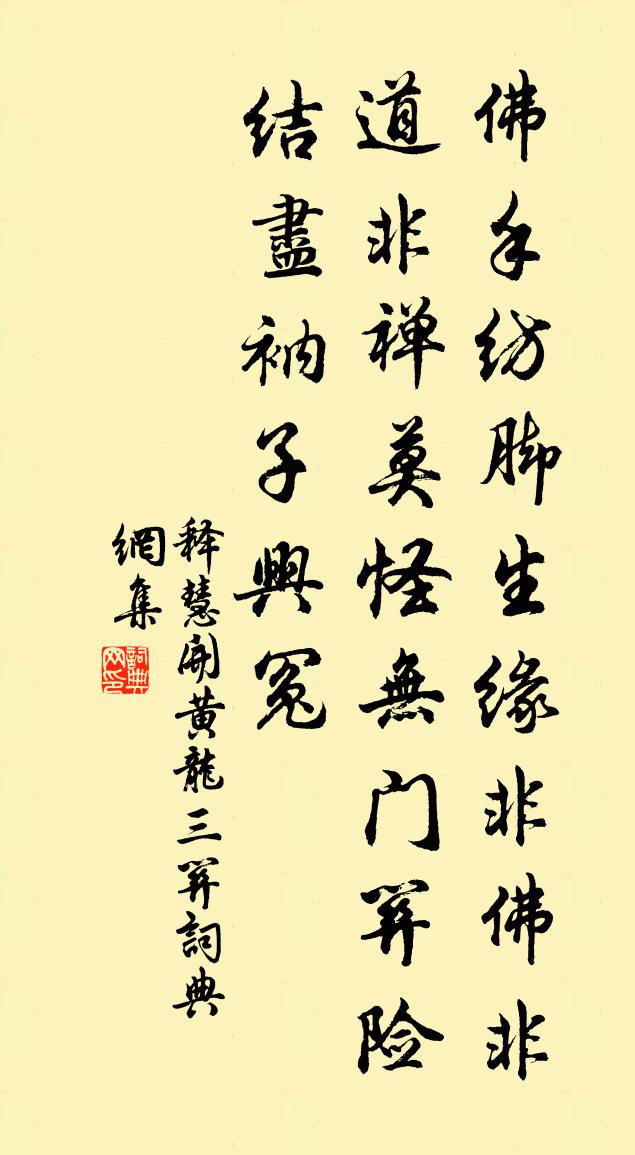 佛手纺脚生缘非佛非
道非禅莫怪無门关险
結盡衲子興冤
释慧開黄龍三关詞典
網集
詞典
网印